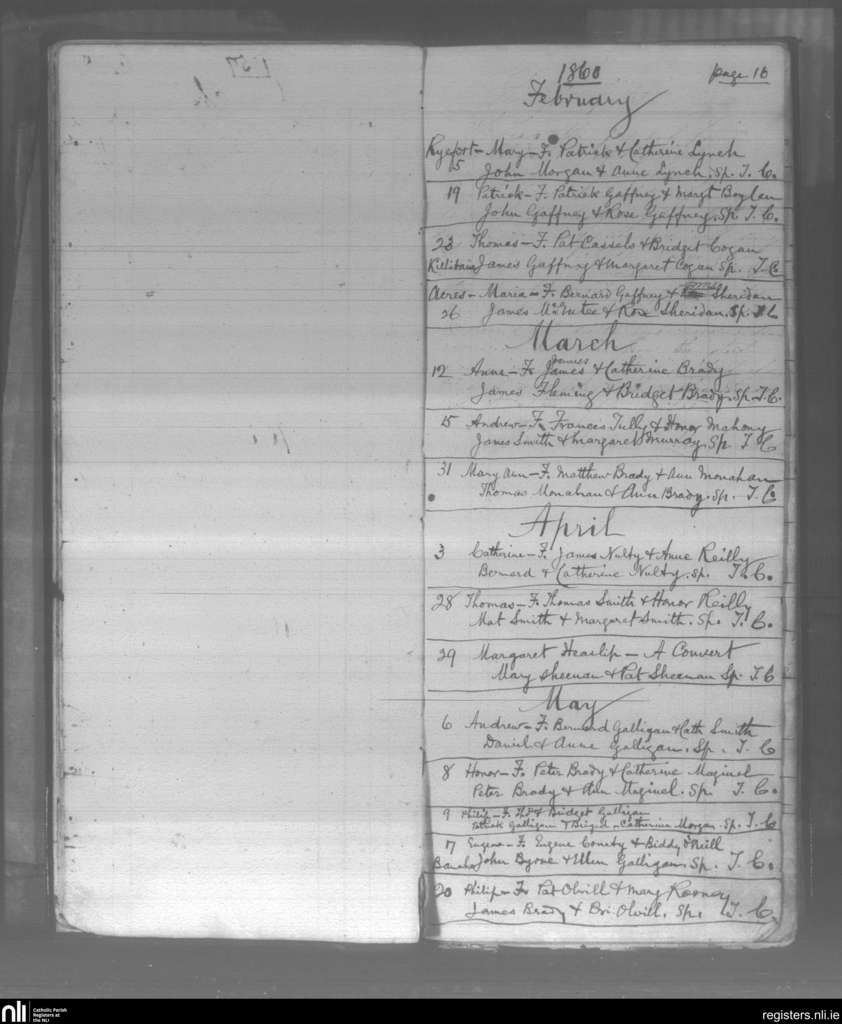 1860
page 16
February
Ryefort - Mary - F. Patrick & Catherine Lynch
15 John Morgan & Anne Lynch. Sp. T. C.
19 Patrick - F. Patrick Gaffney & Margt Boylan
John Gaffney & Rose Gaffney. Sp. T. C.
23 Thomas - F. Pat Cassels & Bridget Cogan
James Gaffney & Margaret Cogan Sp. T. C.
Acres - Maria - F. Bernard Gaffney & Sheridan
26 James McEntee & Rose Sheridan. Sp. T. C.
March
12 Anne - F. James & Catherine Brady
James Fleming & Bridget Brady. Sp. T. C.
15 Andrew - F. Frances Tully & Honor Mahony
James Smith & Margaret Murray. Sp. T. C
31 Mary Ann - F. Matthew Brady & Ann Monahan
Thomas Monahan & Ann Brady. Sp. T. C.
April
3 Catherine - F. James Nulty & Anne Reilly
Bernard & Catherine Nulty. Sp. T. C.
28 Thomas - F. Thomas Smith & Honor Reilly
Mat Smith & Margaret Smith. Sp. T. C.
29 Margaret Heaslip - A Convert
Mary Sheenan & Pat Sheenan Sp. T. C
May
6 Andrew - F. Bernard Galligan & Cath Smith
Daniel & Anne Galligan. Sp. T. C
8 Honor - F. Peter Brady & Catherine Maginel
Peter Brady & Ann Maginel. Sp. T. C.
9 Philip - F. Thos & Bridget Galligan
Patrick Galligan & Catherine Morgan. Sp. T. C
17 Eugene - F. Eugene & Biddy O'Neill
John Byrne & Ellen Galligan. Sp. T. C.
20 Philip - F. Pat Olvill & Mary Rooney
James Brady & Bri. Olvill. Sp. T. C.
nli
Catholic Parish
Registers at
the NLI
registers.nli.ie